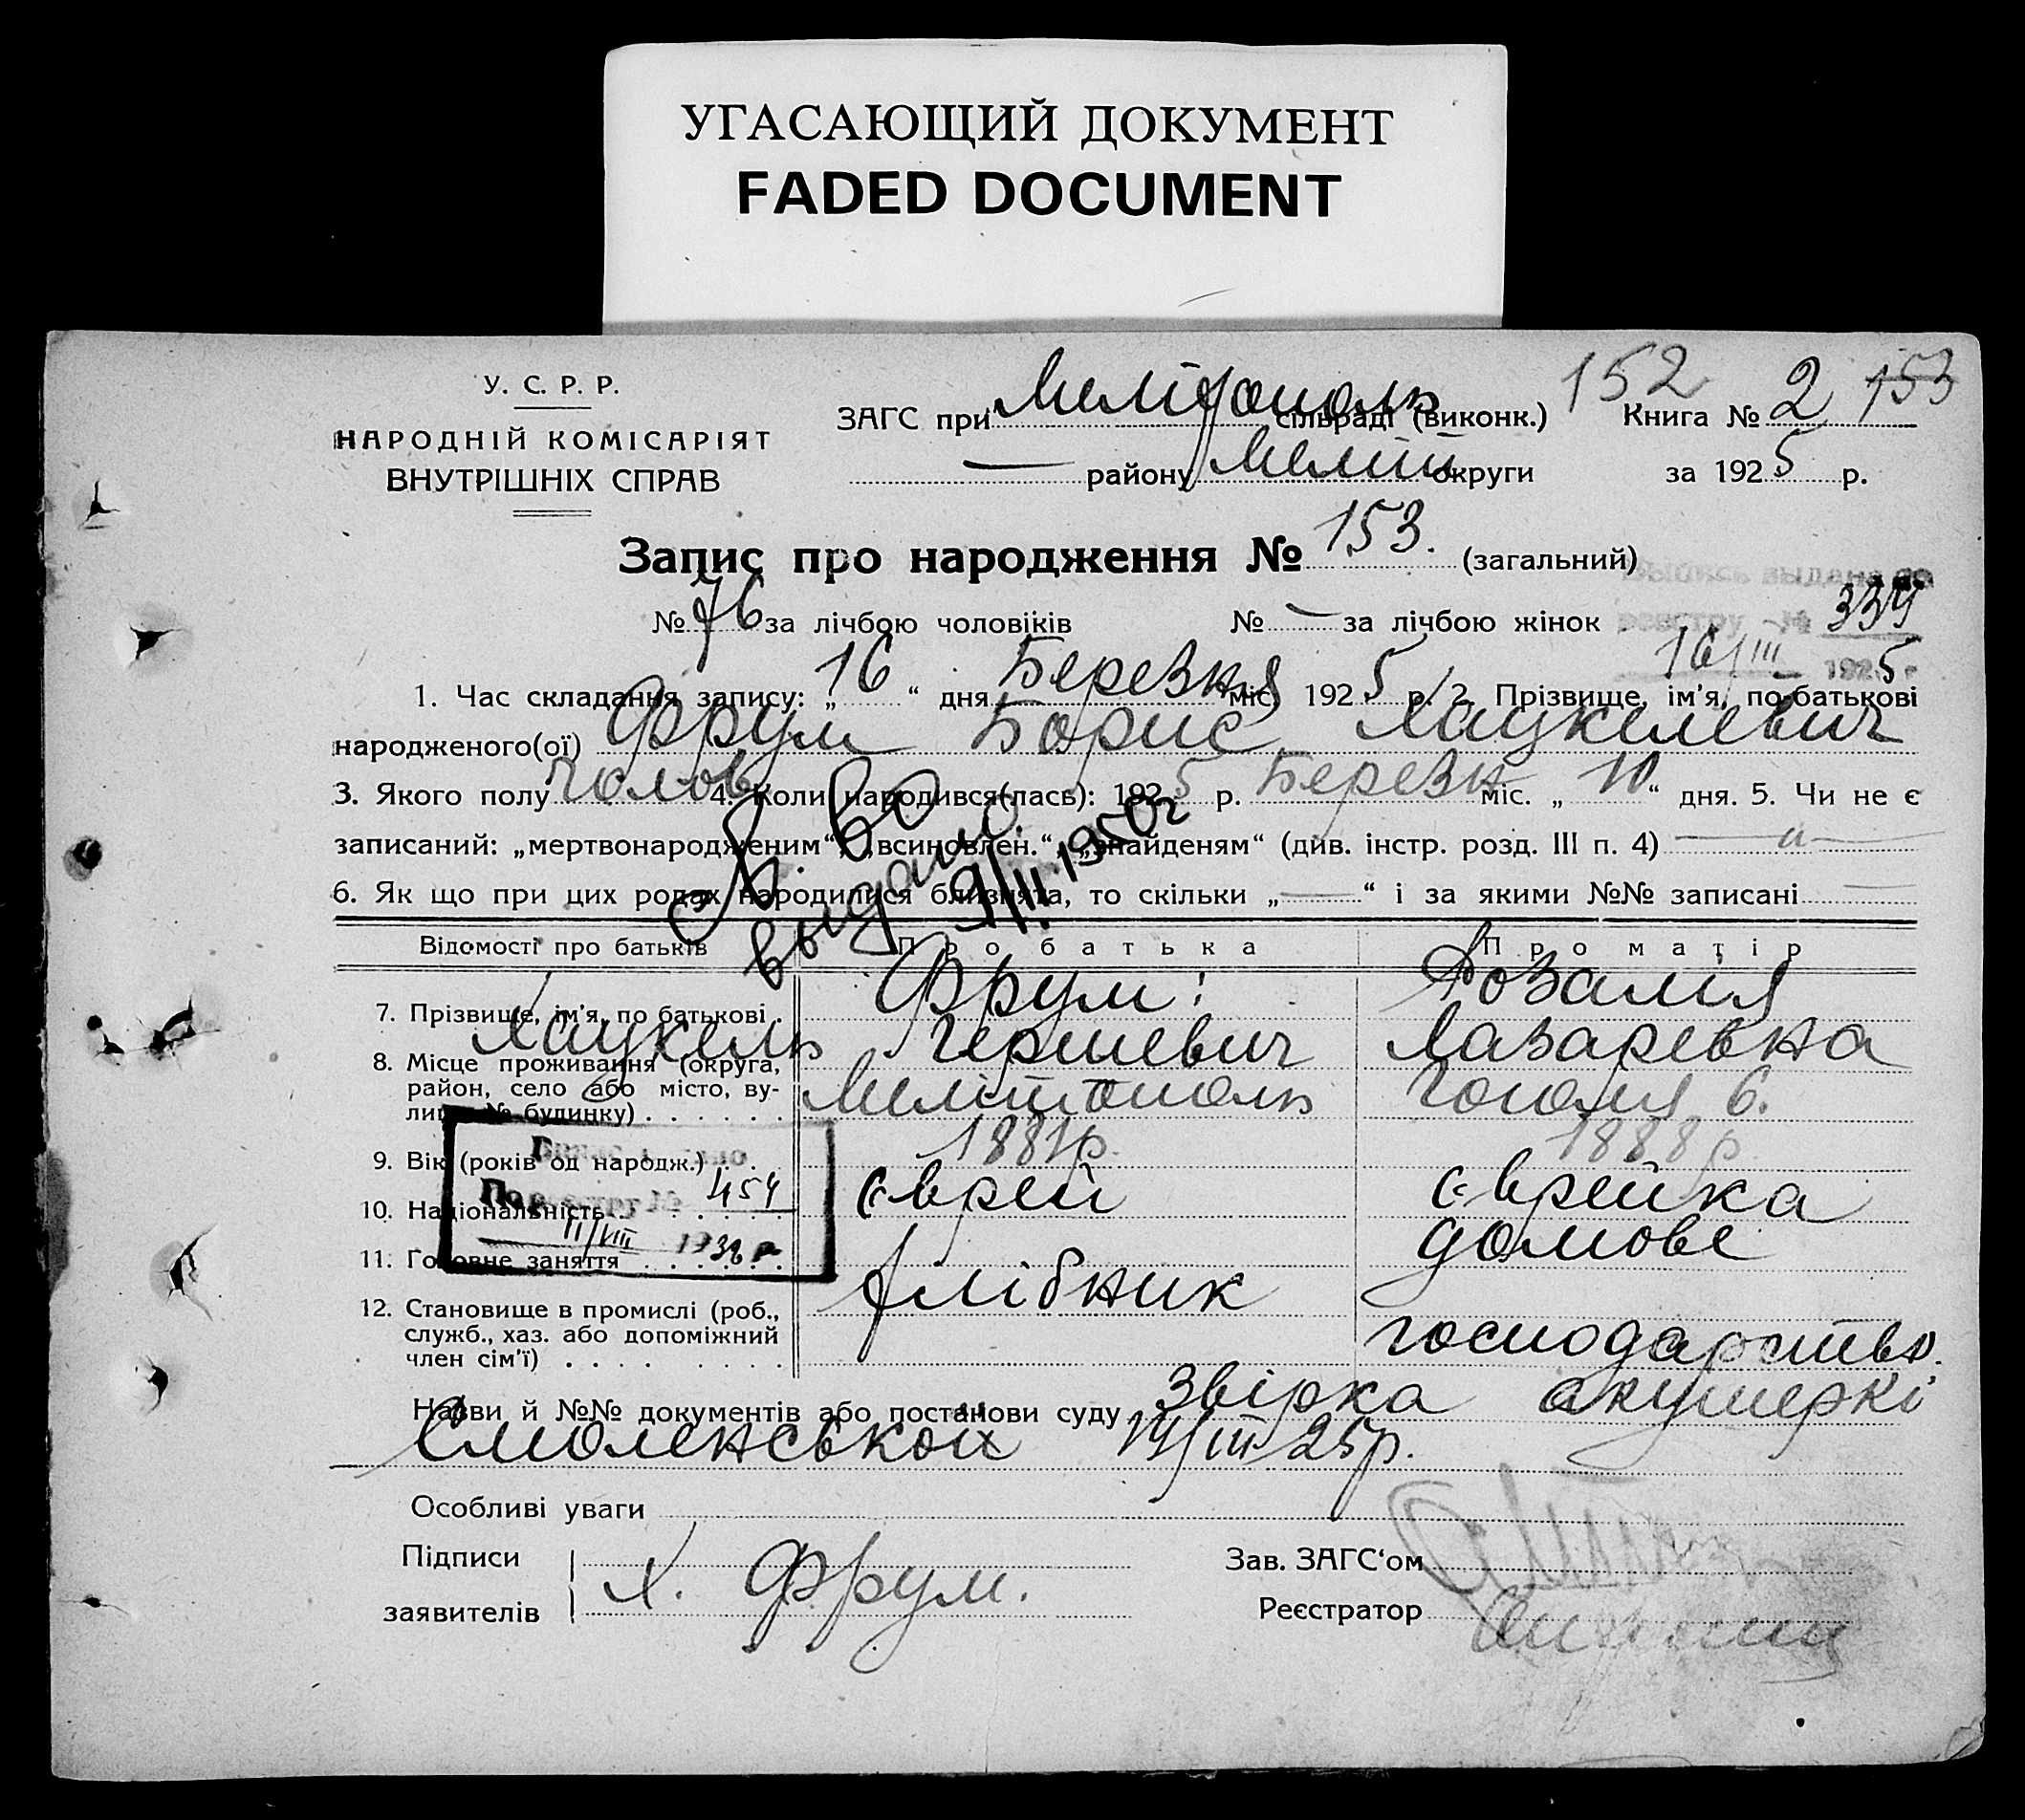 УГАСАЮЩИЙ ДОКУМЕНТ
FADED DOCUMENT
У. С. Р. Р.
НАРОДНІЙ КОМІСАРІЯТ
ВНУТРІШНІХ СПРАВ
152 153
ЗАГС при Мелітополь сільраді (виконк.) Книга № 2
— району Меліт округи за 1925 р.
Запис про народження № 153. (загальний)
Выпись выдана по
реестру № 334
16/III 1925 г
№ 76 за лічбою чоловіків № — за лічбою жінок
1. Час складання запису: „16“ дня Березня міс. 1925 р. 2. Прізвище, ім'я, по-батькові
народженого(ої) Фрум Борис Хацкелевич
3. Якого полу чолов 4. Коли народився(лась): 1925 р. Березн міс. „10“ дня. 5. Чи не є
записаний: „мертвонародженим“, „всиновлен.“, „знайденям“ (див. інстр. розд. III п. 4) —
6. Як що при цих родах народилися близнята, то скільки „—“ і за якими №№ записані —
выдано
9/II 1950г
Відомості про батьків Про батька Про матір
7. Прізвище, ім'я, по батькові . Фрум Розалия
Хацкель Гершевич Лазаревна
8. Місце проживання (округа,
район, село або місто, ву-
лиця, № будинку) . . . . . . Мелітополь Гоголя 6.
9. Вік (років од народж.) . . 1881р. 1888р.
10. Національність . . . . . . . єврей єврейка
11. Головне заняття . . . . . . хлібник домове
господарство.
12. Становище в промислі (роб.,
служб., хаз. або допоміжний
член сім'ї) . . . . . . . .
По реестру № 454
11/VIII 1938 р
Назви й №№ документів або постанови суду Звірка акушеркі
Смоленськой 14/III 25р.
Особливі уваги
Підписи
заявителів Х. Фрум.
Зав. ЗАГС'ом
Реєстратор